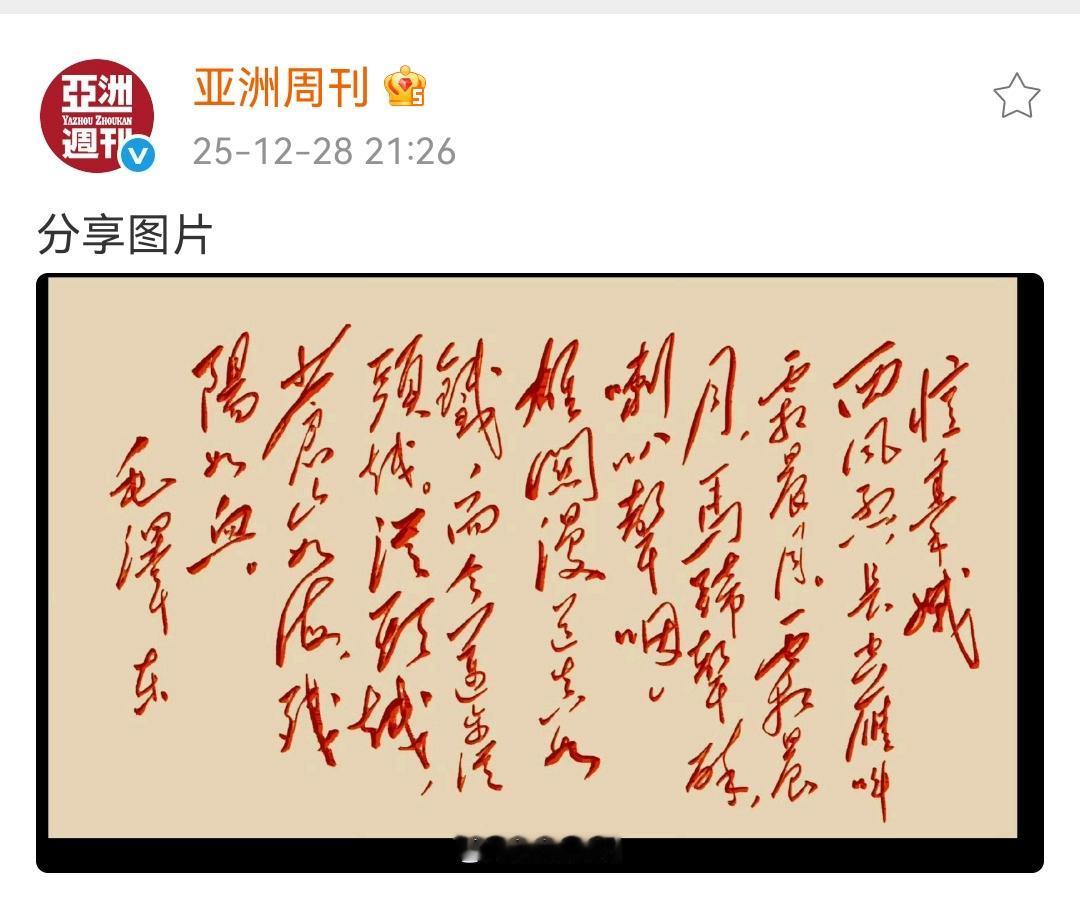 亞洲
YAZHOU ZHOUKAN
週刊
亚洲周刊
5
25-12-28 21:26
分享图片
憶秦娥
西风烈長空雁叫
霜晨月。霜晨
月,馬蹄聲碎,
喇叭聲咽。
雄關漫道真如
鐵,而今邁步從
頭越。從頭越,
蒼山如海,殘
陽如血。
毛澤東